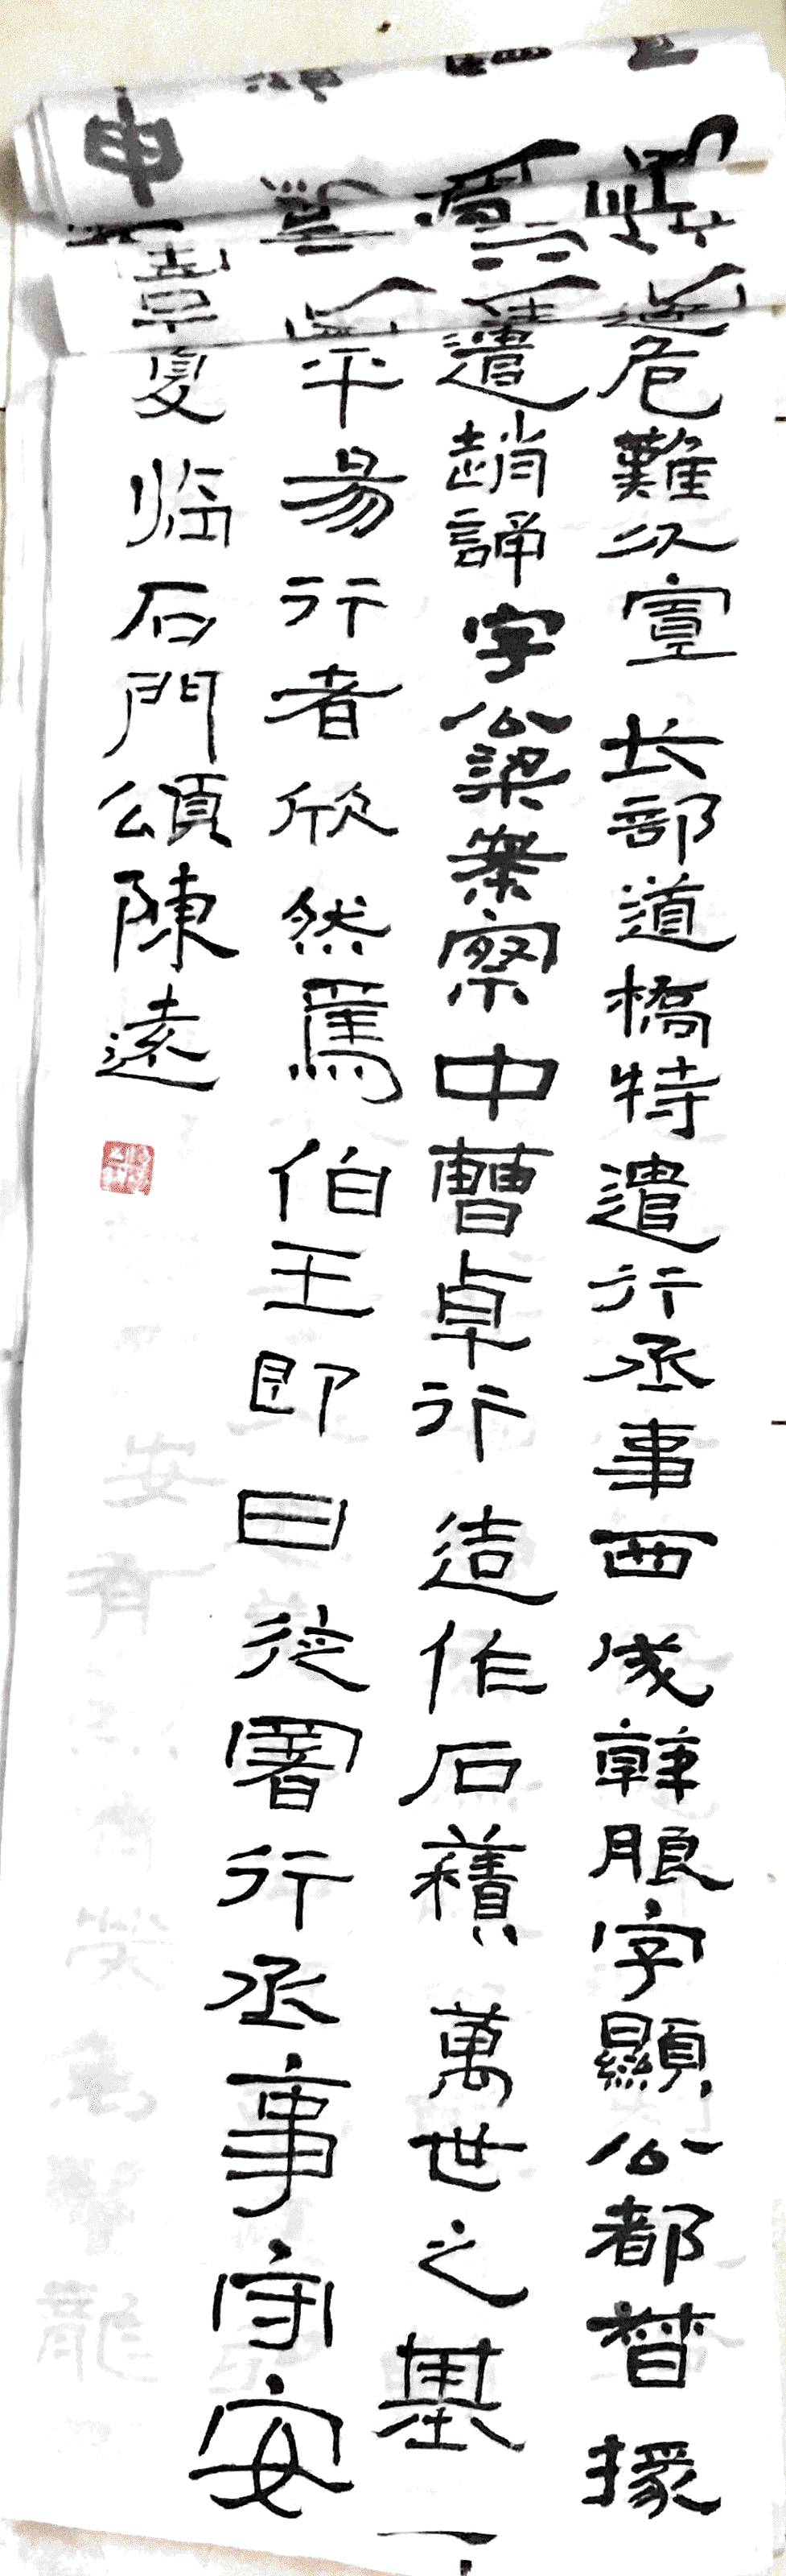 危難以寬長部道橋特遣行丞事西成韓朖字顯公都督掾
遣趙誦字公梁案察中曹卓行造作石積萬世之基
平易行者欣然焉伯玉即日徙署行丞事守安
申
夏临石門頌陳遠